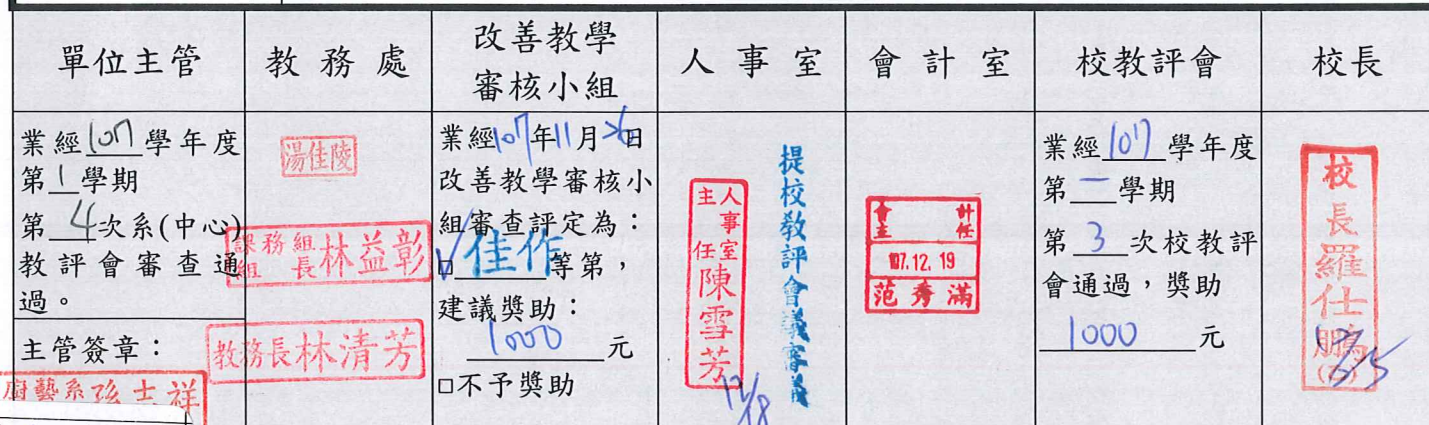 單位主管
教務處
改善教學
審核小組
人事室
會計室
校教評會
校長
業經107學年度
第1學期
第4次系(中心)
教評會審查通
過。
主管簽章：
廚藝系孫士祥
湯佳陵
課務組
組長林益彰
教務長林清芳
業經107年11月26日
改善教學審核小
組審查評定為：
□佳作等第，
建議獎助：
1000元
□不予獎助
人事室
主任陳雪芳
12/18
提校教評會議審議
會計
主任
107.12.19
范秀滿
業經107學年度
第一學期
第3次校教評
會通過，獎助
1000元
校長羅仕鵬